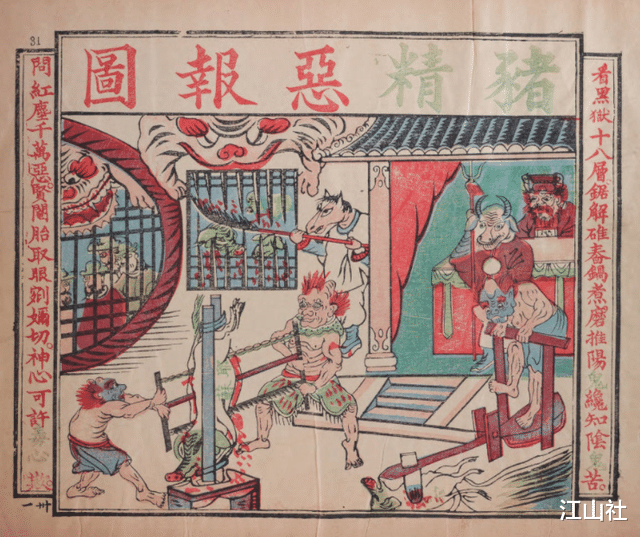 豬精惡報圖
看黑獄十八層鋸解碓舂鍋煮磨推陽纔知陰苦
問紅塵千萬惡胎取眼切神心可許心
31
卅一
江山社